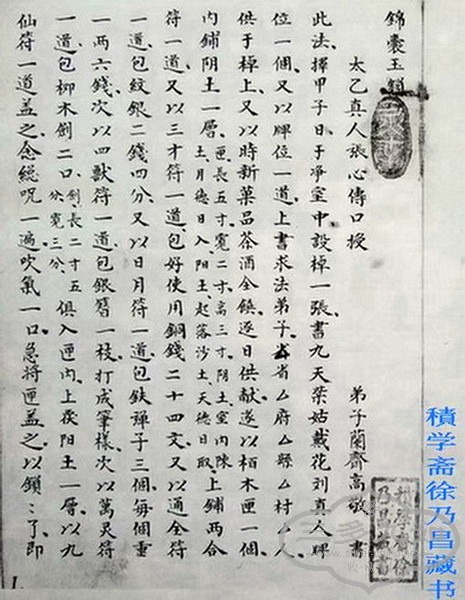 錦囊玉鎖
太乙真人張心傳口授
弟子蘭齊高敬書
此法擇甲子日于淨室中設棹一張書九天萊姑戴花刘真人牌
位一個又以牌位一道上書求法弟子厶省厶府厶縣厶村人
供于棹上又以時新菓品茶酒全鎮逐日供献遂以栢木匣一個
内鋪阴土一層匣長五寸寬二寸高三寸阴土室内陳土月德日入阳土起落沙土天德日取上鋪两合
符一道又以三才符一道包好使用銅錢二十四文又以通全符
一道包紋銀二錢四分又以日月符一道包鉄弹子三個每個重
一两六錢次以四獸符一道包銀簪一枝打成筆樣次以萬灵符
一道包柳木劊二口劊長二寸五分寬三分俱入匣内上羙阳土一層以九
仙符一道盖之念總咒一遍吹氣一口急將匣盖之以鎖鎖了即
積学斋徐乃昌藏书
積學齋徐乃昌藏書